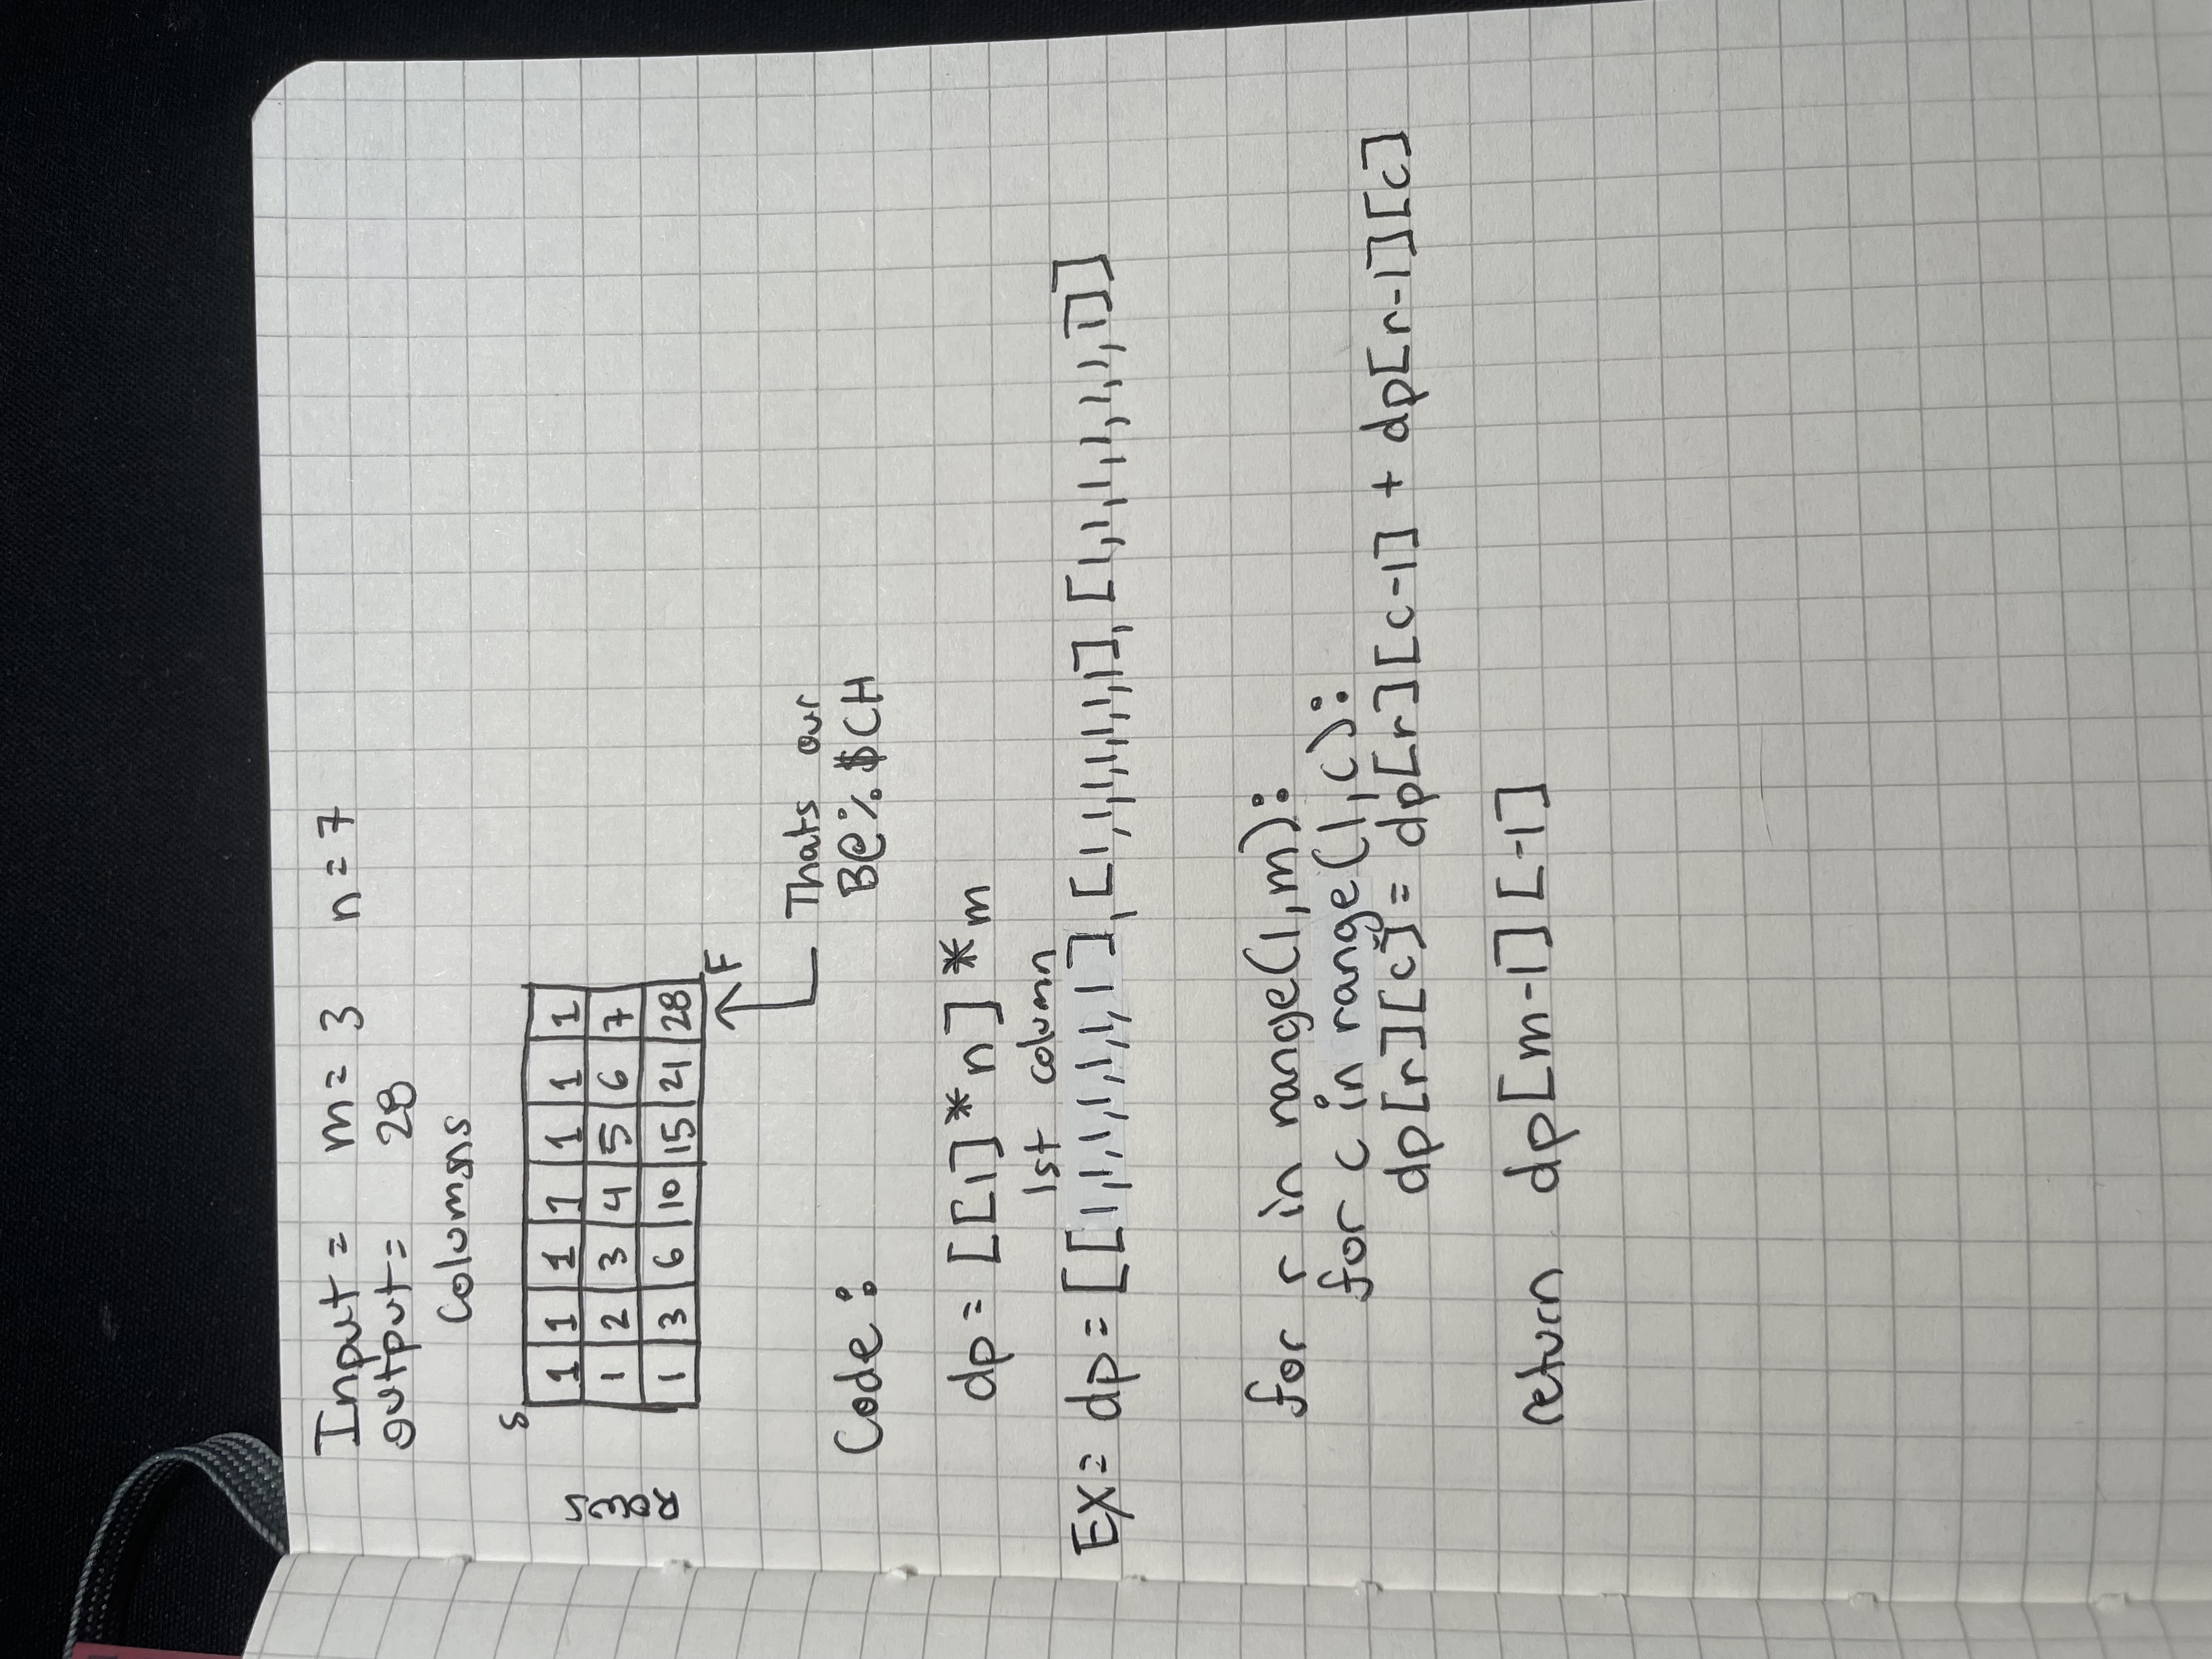 Input = m = 3 n = 7
output = 28
Columsns
S
ROWS
1 1 1 1 1 1 1
1 2 3 4 5 6 7
1 3 6 10 15 21 28
F
Thats our
B@%$CH
Code :
dp = [[1] * n] * m
1st column
EX = dp = [[1,1,1,1,1,1,1], [1,1,1,1,1,1,1], [1,1,1,1,1,1,1]]
for r in range(1,m):
for c in range(1,c):
dp[r][c] = dp[r][c-1] + dp[r-1][c]
return dp[m-1][-1]